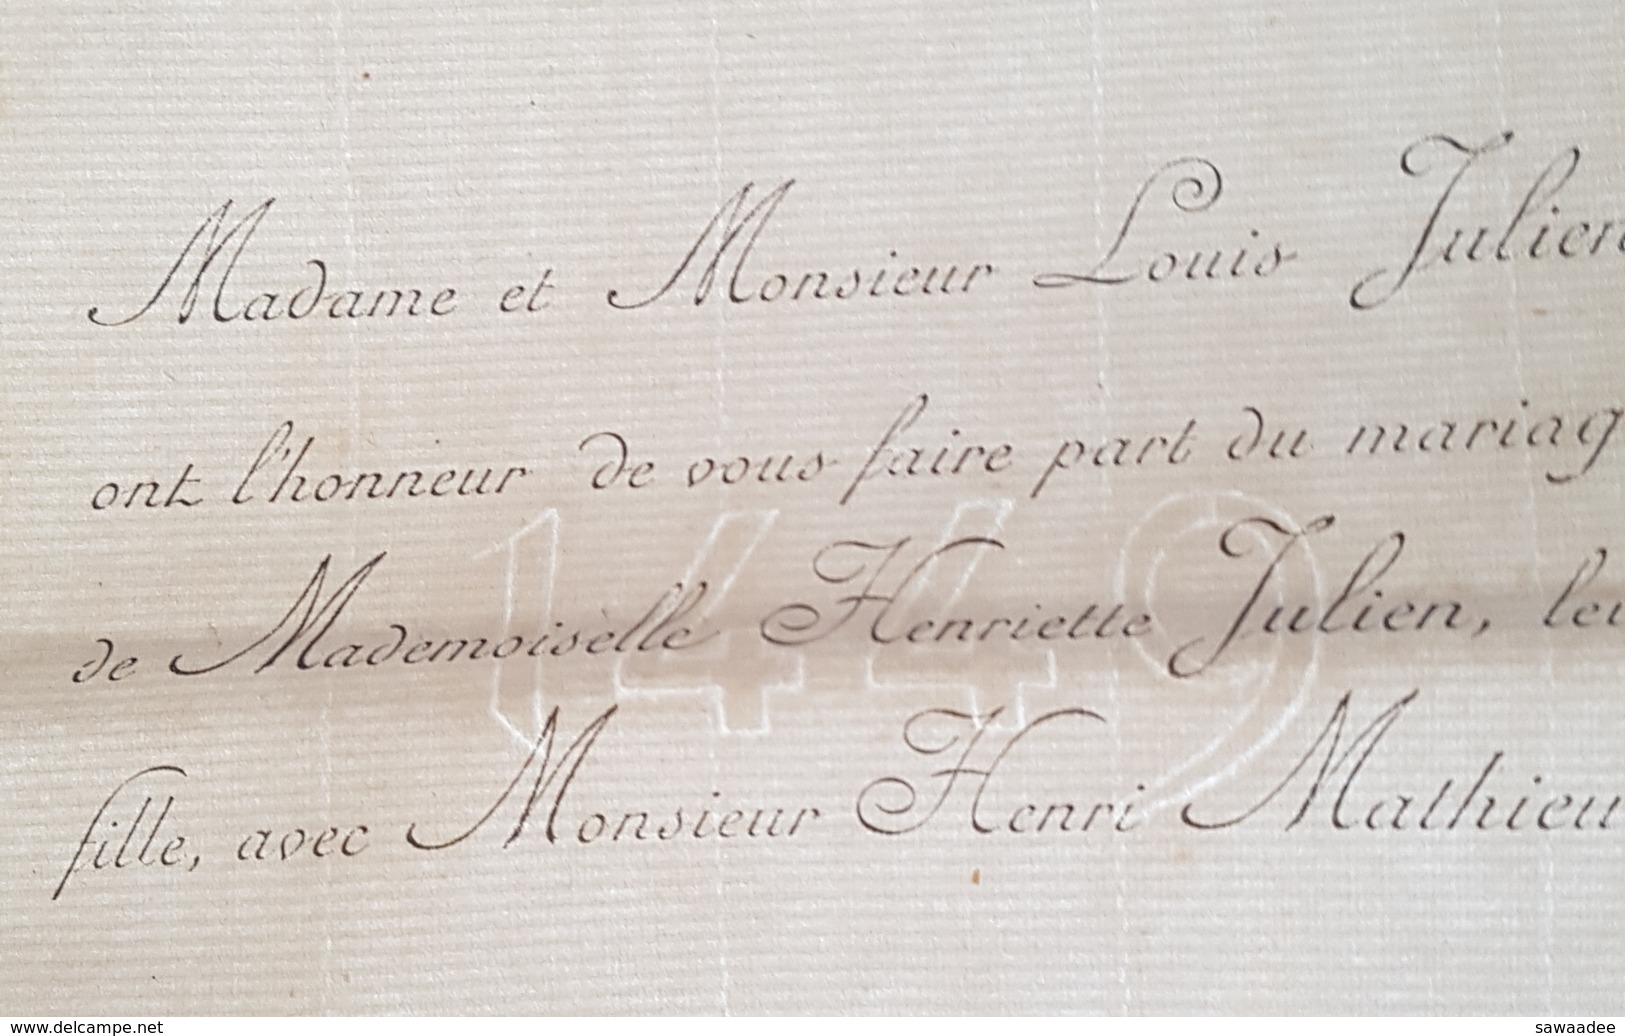 Madame et Monsieur Louis Julien
ont l'honneur de vous faire part du mariag
de Mademoiselle Henriette Julien, leu
fille, avec Monsieur Henri Mathieu
1449
www.delcampe.net
sawaadee